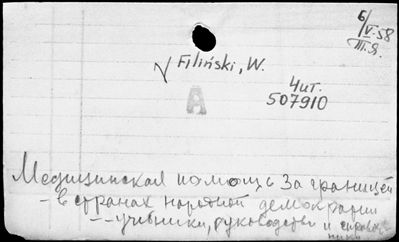 6/V-58
III.Я.
√ Filiński, W.
Чит.
507910
А
Медицинская помощь за границей
- в странах народной демократии
- - учебники, руководства и справоч
ники